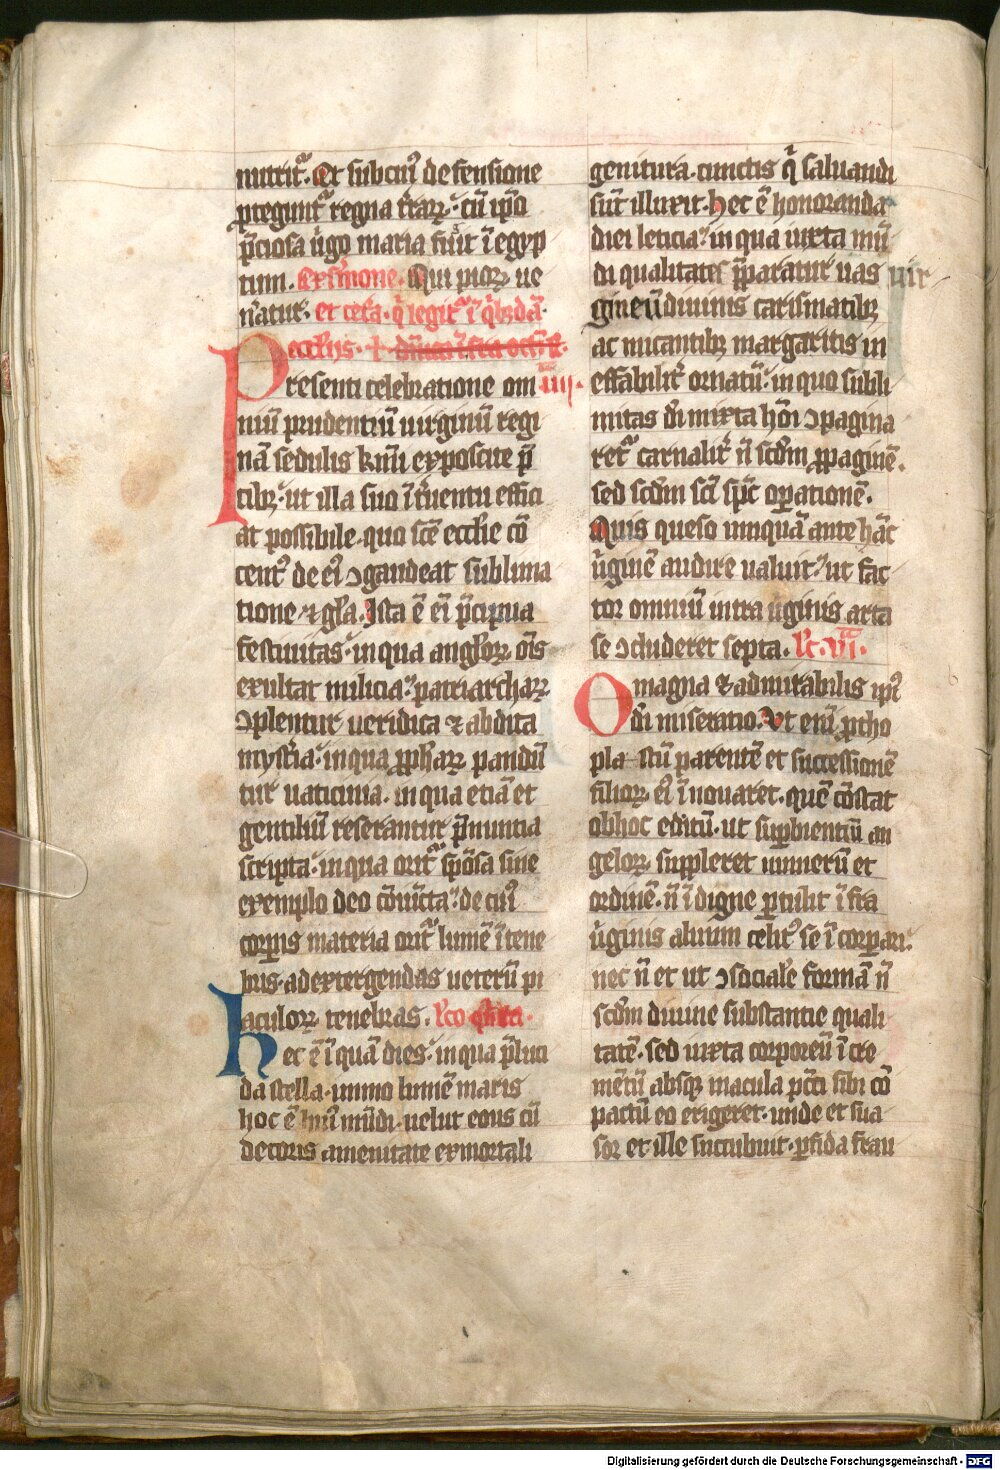 nutrit᷑. Et sub cui⁹ defensione
ꝓtegunt᷑ regna t̄raꝝ. cū ip̄o
p̄ciosa ŭgo maria fuit ī egyp
tum. Ex s̄mone. Qui pioꝝ ue
n̄atur. et cet̄a. q̄ legit᷑ ī q̄bzdā
ecc̄lijs.
Presenti celebratione om iiij.
niū prudentiū uirginū regi
nā sedulis kr̄mi exposcite p̄
cibꝫ. ut illa suo īt̄uentu effici
at possibile. quo sc̄e ecc̄lie cō
cent⁹ de ei⁹ ꝯgaudeat sublima
tione ⁊ gl̄a. Ista ē eī p̄cipua
festiuitas. in qua angl̄oꝝ oīs
exultat milicia. patriarchaꝝ
ꝯplentur ueridica ⁊ abdita
myst̄ia. in qua ꝓph̄aꝝ pandū
tur uaticinia. in qua etiā et
gentiliū reserantur p̄nuntia
scripta. in qua orit᷑ sp̄osa sine
exemplo deo cōiūcta. de cui⁹
corp̄is materia orit᷑ lumē ī tene
bris. ad extergendas ueterū pi
aculoꝝ tenebras. Lc̄o q̄nta.
Hec ē īquā dies. in qua p̄luci
da stella. immo lumē maris
hoc ē hui⁹ mūdi. uelut eous cū
decoris amenitate ex mortali
genitura. cunctis q̄ saluandi
sūt illuxit. Hec ē honoranda
diei leticia. in qua iuxta mū
di qualitates p̄paratur uas uir
gineū diuinis carismatibꝫ
ac micantibꝫ margaritis in
effabilit̄ ornatū. in quo subli
mitas dī mixta hōi ꝯpagina
ret᷑ carnalit̄ n̄ scdm ꝓpaginē.
sed scdm sc̄i sp̄c oꝑationē.
Quis queso umquā ante hāc
ŭginē audire ualuit. ut fac
tor omniū intra ŭginis arta
se ꝯcluderet septa. Lc̄. vi.
O magna ⁊ admirabilis ip̄i⁹
dī miseratio. Ut enī ꝓtho
pla stū parentē et successionē
filioꝝ ei⁹ īnouaret. quē cōstat
ob hoc editū. ut suꝑbientiū an
geloꝝ suppleret numerū et
ordinē. n̄ īdigne ꝑtulit īfra
ŭginis aluum celit⁹ se īcorpari.
nec n̄ et ut ꝯsociale formā n̄
scdm diuine substantie quali
tatē. sed iuxta corporeū īcre
mētū absqꝫ macula pc̄ti sibi cō
pactū eo erigeret. unde et sua
sor et ille succubuit. ꝑfida frau
Digitalisierung gefördert durch die Deutsche Forschungsgemeinschaft - DFG